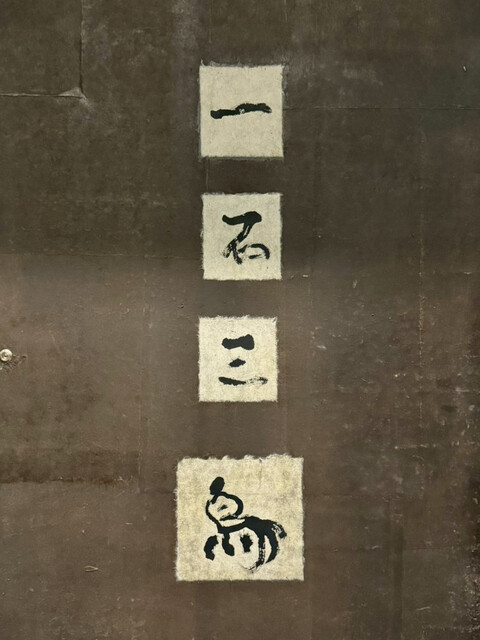 一
石
三
鳥